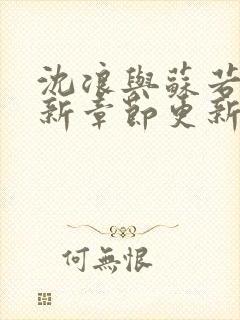 沈浪與蘇若
新章節更新
何無恨